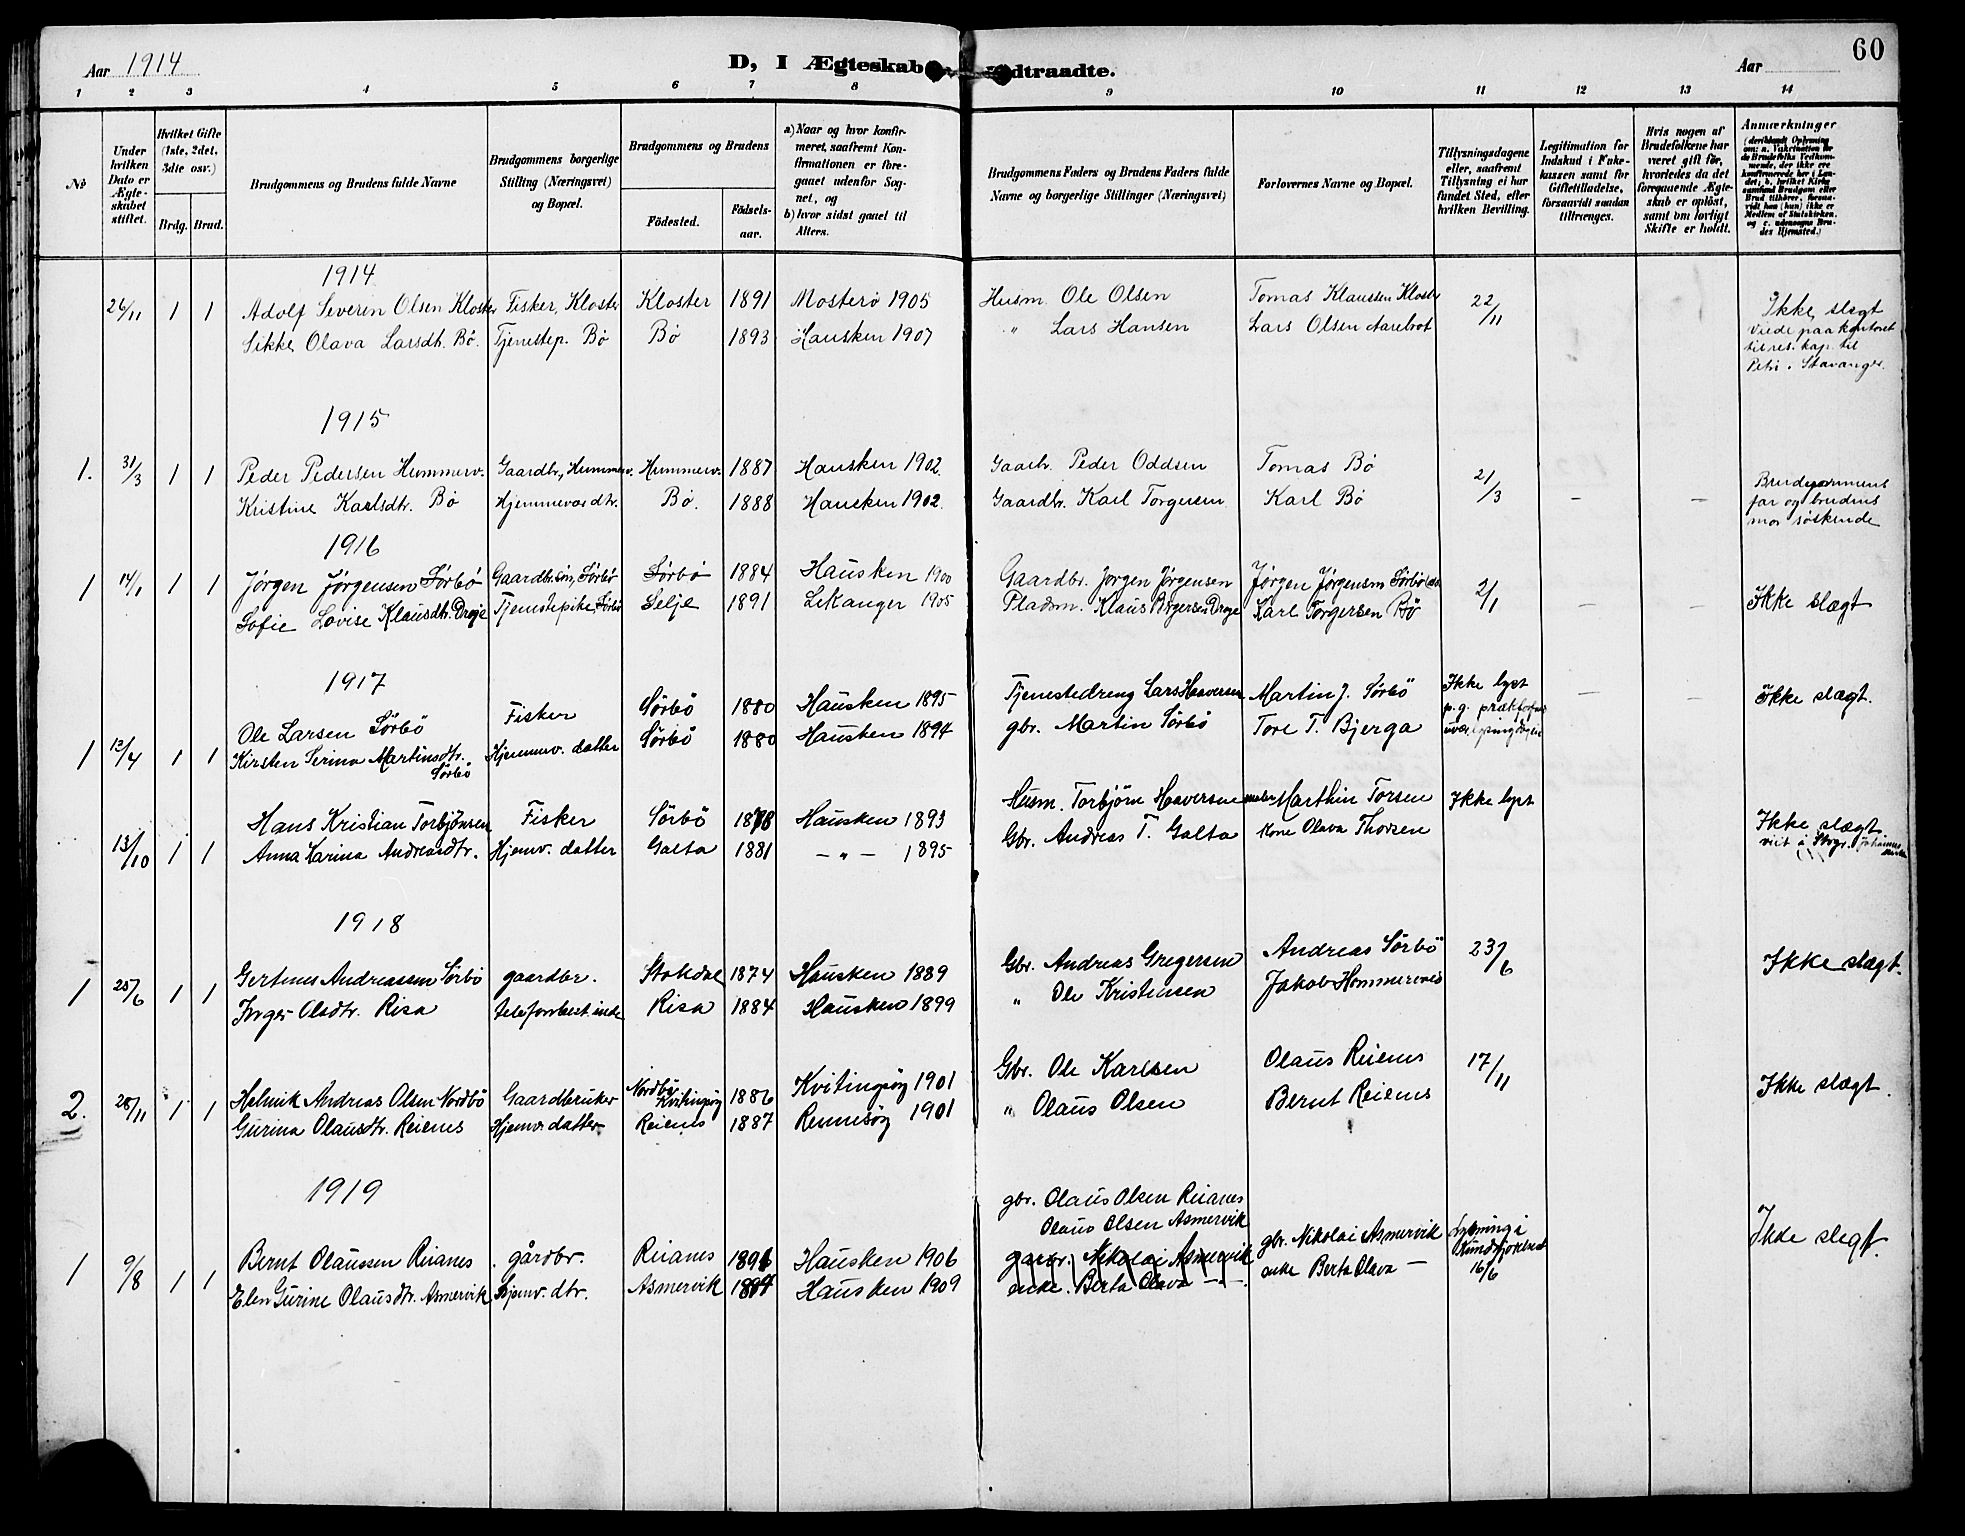 Aar 1914
D, I Ægteskab Indtraadte.
Aar
60
1 2 3 4 5 6 7 8 9 10 11 12 13 14
No
Under hvilken Dato er Ægteskabet stiftet.
Hvilket Gifte (1ste, 2det, 3dte osv.)
Brdg. Brud.
Brudgommens og Brudens fulde Navne
Brudgommens borgerlige Stilling (Næringsvei) og Bopæl.
Brudgommens og Brudens
Födested. Födsels-aar.
a) Naar og hvor konfirmeret, saafremt Konfirmationen er foregaaet udenfor Sognet, og
b) hvor sidst gaaet til Alters.
Brudgommens Faders og Brudens Faders fulde Navne og borgerlige Stillinger (Næringsvei)
Forlovernes Navne og Bopæl.
Tillysningsdagene eller, saafremt Tillysning ei har fundet Sted, efter hvilken Bevilling.
Legitimation for Indskud i Enkekassen samt for Giftetilladelse, forsaavidt saadan tiltrænges.
Hvis nogen af Brudefolkene har været gift før, hvorledes da det foregaaende Ægteskab er oplöst, samt om lovligt Skifte er holdt.
Anmærkninger (deriblandt Oplysning om: a. Vakcination for de Brudefolks Vedkommende, der ikke ere konfirmerede her i Landet, b. hvilket Kirkesamfund Brudgom eller Brud tilhører, forsaavidt han (hun) ikke er Medlem af Statskirken, og c. udensogns Brudes Hjemsted.)
1914
26/11 1 1 Adolf Severin Olsen Kloster Fisker, Kloster Kloster 1891 Mosterö 1905 Husm. Ole Olsen Tomas Klaussen Kloster 22/11 Ikke slægt
Sikke Olava Larsdt. Bö. Tjenestep. Bö Bö 1893 Hausken 1907 " Lars Hansen Lars Olsen Viede paa kontoret
til res. kap. til
Petri i Stavanger.
1915
1. 31/3 1 1 Peder Pedersen Hummerv. Gaardbr., Hummerv. Hummerv. 1887 Hausken 1902 Gaarbr. Peder Oddsen Tomas Bö 21/3 Brudgommens
Kristine Karlsdtr. Bö Hjemmevær. dtr. Bö. 1888 Hausken 1902. Gaardbr. Karl Torgersen Karl Bö – – far og brudens
mor söskende
1916
1 14/1 1 1 Jörgen Jörgensen Sörbö Gaardbr.sön, Sörbö Sörbö 1884 Hausken 1900 Gaardbr. Jörgen Jörgensen Jörgen Jörgensen Sörbö 2/1 – – Ikke slægt
Sofie Lovise Klausdtr. Drage Tjenestepike, Sörbö Selje 1891 Lekanger 1905 Pladsm. Klaus Drage Karl Torgersen Bö
1917
1 13/4 1 1 Ole Larsen Sörbö Fisker Sörbö 1880 Hausken 1895 Tjenestedreng Lars Haaversen Martin J. Sörbö Ikke lyst p.g. – – Ikke slægt.
Kirsten Serina Martinsdtr. Sörbö Hjemmev. datter Sörbö 1880 Hausken 1894 gbr. Martin Sörbö Tore T. Bjerga
13/10 1 1 Hans Kristian Torbjönsen Fisker Sörbö 1878 Hausken 1893 Husm. Torbjörn Haaversen Marthin Torsen Ikke lyst Ikke slægt.
Anna Karina Andreasdtr. Hjemv. datter Galta 1881 – " – 1895 Gbr. Andreas T. Galta Kone Olava Thorsen viet i
1918
1 25/6 1 1 Gertinus Andreassen Sörbö gaardbr. Stokdal 1874 Hausken 1889 Gbr. Andreas Gregersen Andreas Sörbö 23/6 Ikke slægt.
Inger Olsdtr. Risa telefonbest.inde Risa 1884 Hausken 1899 " Ole Kristensen Jakob Hommervik
2. 28/11 1 1 Helmik Andreas Olsen Nordbö Gaardbruker Nordbö Kvitingsöy 1886 Kvitingsöy 1901 Gbr. Ole Karlsen Olaus Reienes 17/11 Ikke slægt.
Gurina Olausdtr. Reienes Hjemv. datter Reienes 1887 Rennesöy 1901 " Olaus Olsen Bernt Reienes
1919
gbr. Olaus Olsen Reianes
Olaus Olsen Asmervik
1 9/8 1 1 Bernt Olaussen Reianes gårdbr. Reianes 1891 Hausken 1906 gaarbr. Nikolai Asmervik gbr. Nikolai Asmervik Lysning i 16/6 Ikke slegt.
Elen Gurine Olausdtr. Asmervik Hjemv. dtr. Asmervik 1894 Hausken 1909 enke. Berta Olava – – enke Berta Olava –